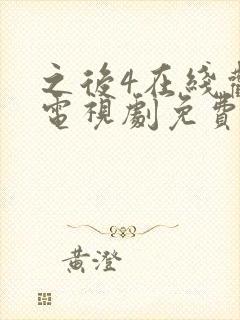 之後4在綫觀
電視劇免費
黃澄